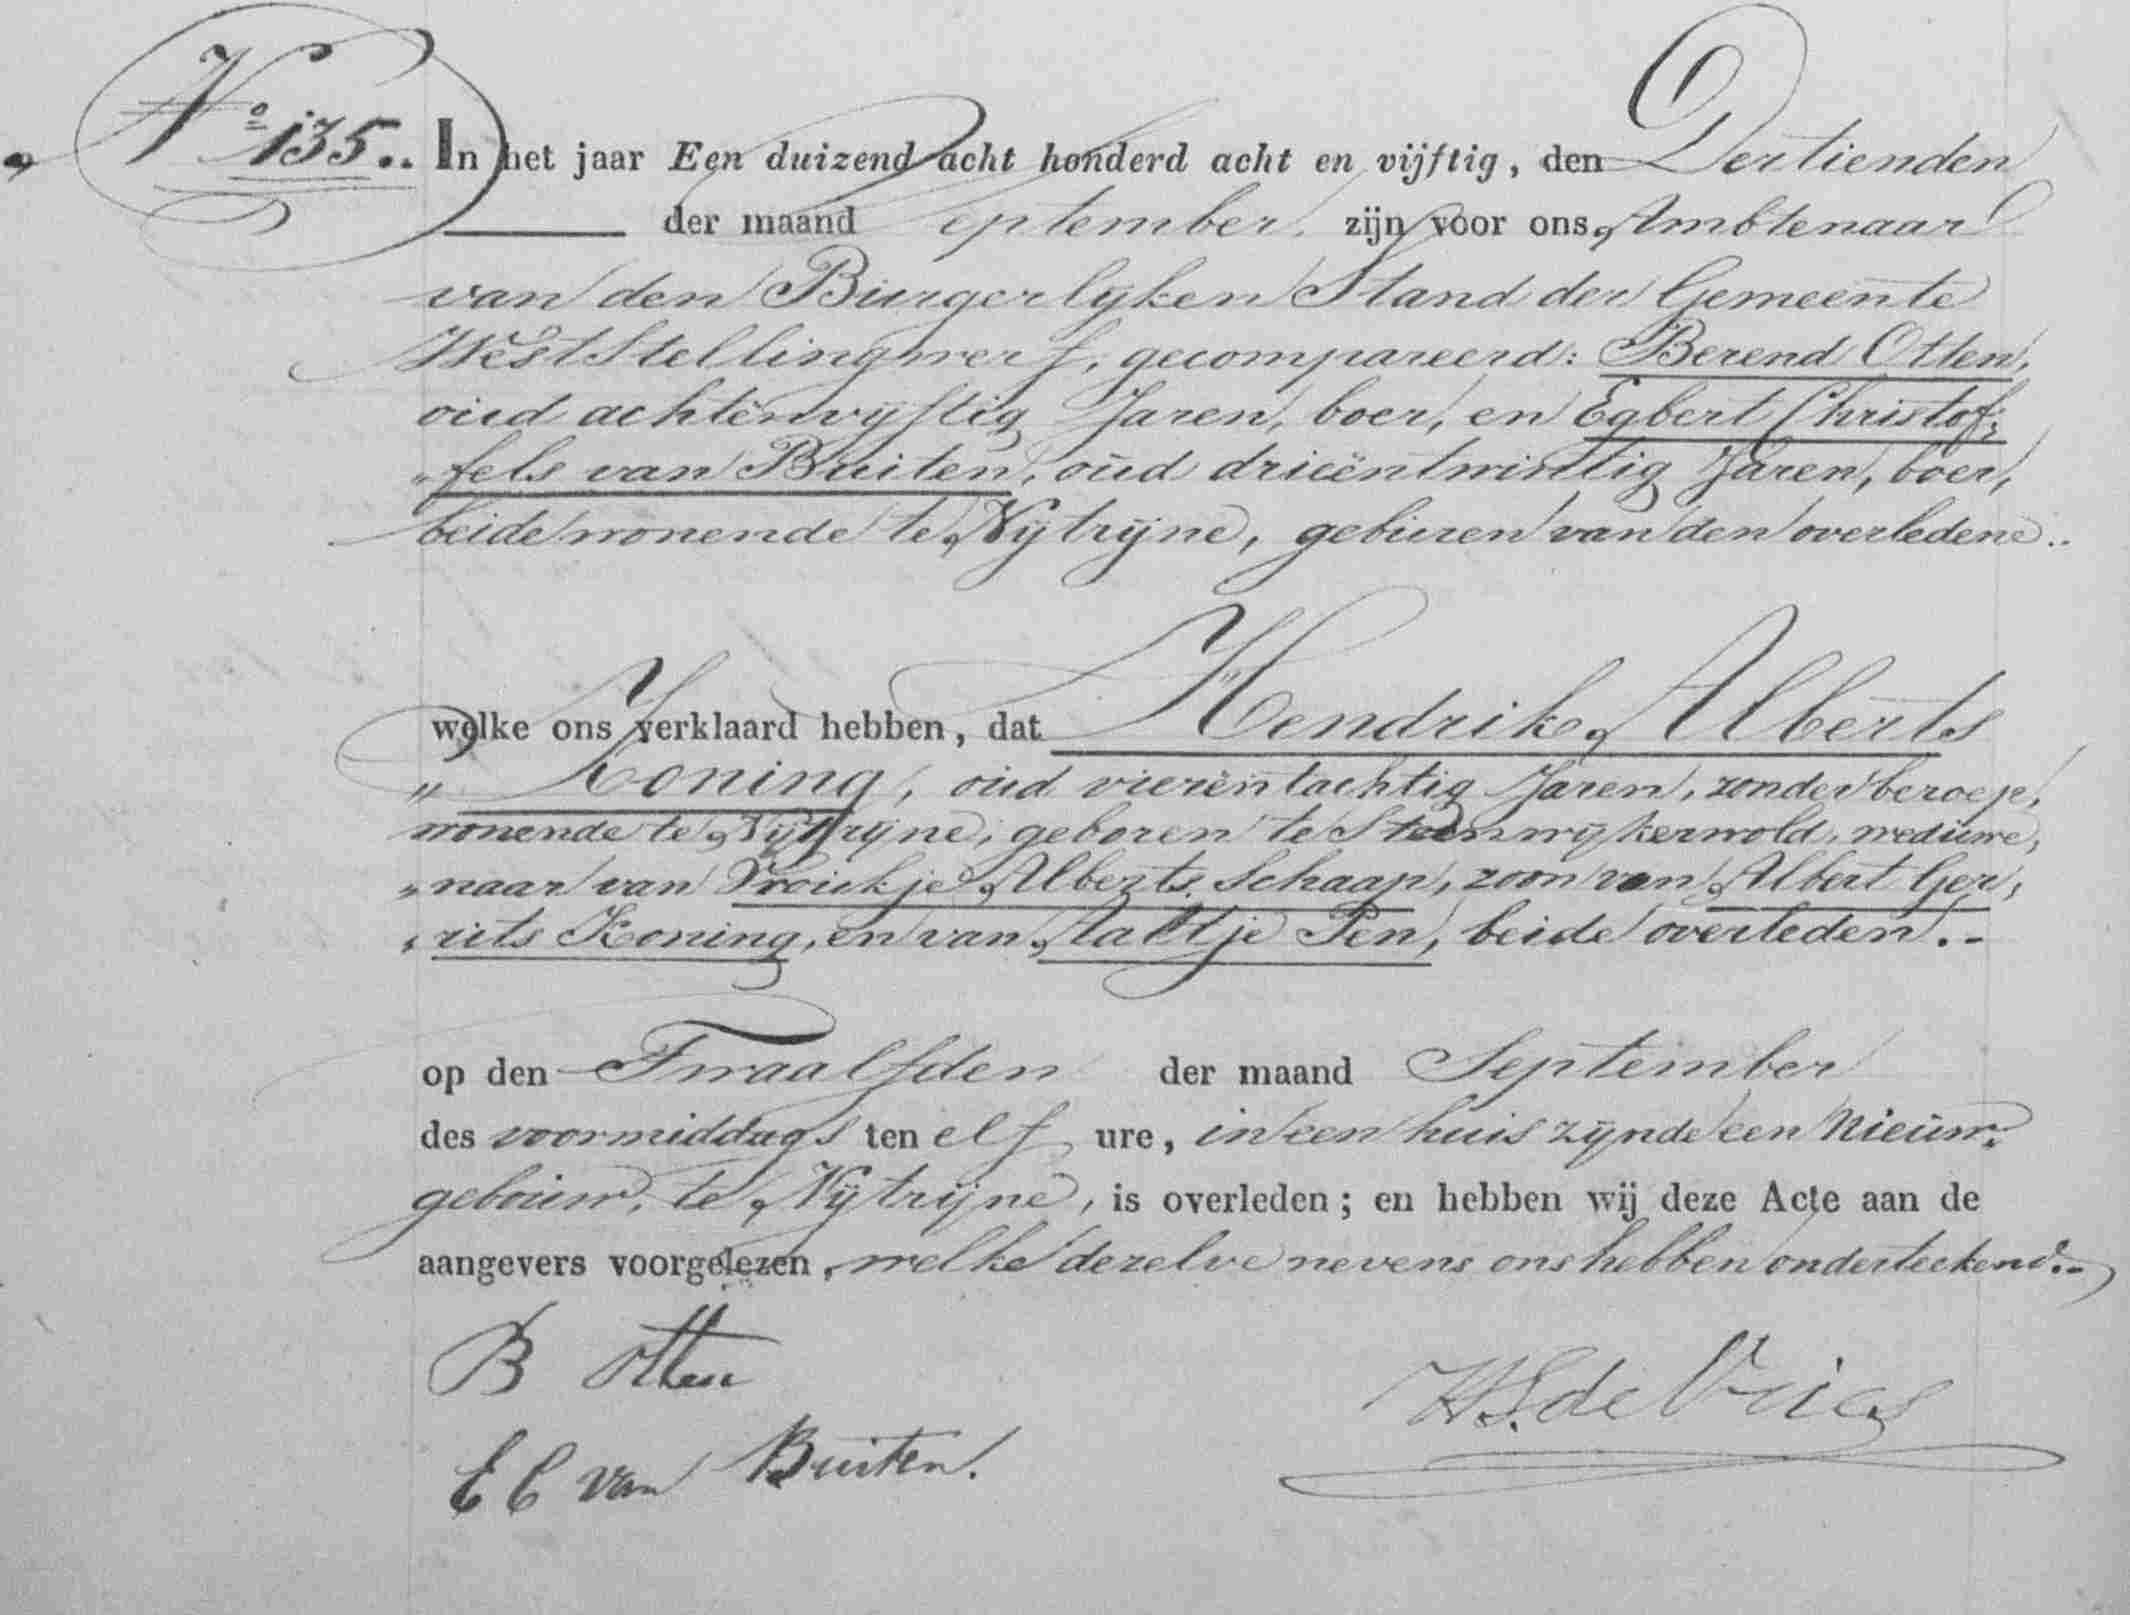 No 135..
In het jaar Een duizend acht honderd acht en vijftig, den Dertienden
der maand September zijn voor ons, Ambtenaar
van den Burgerlyken Stand der Gemeente
WestStellingwerf, gecompareerd: Berend Otten,
oud achtënvyftig Jaren, boer, en Egbert Christof-
„fels van Buiten, oud drieëntwintig Jaren, boer,
beide wonende te Nÿtrÿne, geburen van den overledene..
welke ons verklaard hebben, dat Hendrik Alberts
„ Koning, oud vierëntachtig Jaren, zonder beroep,
wonende te Nÿtrÿne, geboren te Steenwykerwold, weduwe,
„naar van Vroukje Alberts Schaap, zoon van Albert Ger,
„rits Koning, en van Aaltje Pen, beide overleden.-
op den Twaalfden der maand September
des voormiddags ten elf ure, in een huis zÿnde een Nieuw-
gebouw, te Nÿtrÿne, is overleden; en hebben wij deze Acte aan de
aangevers voorgelezen, welke dezelve nevens ons hebben onderteekend.-
B Otten
HS. de Vries
E C van Buiten.